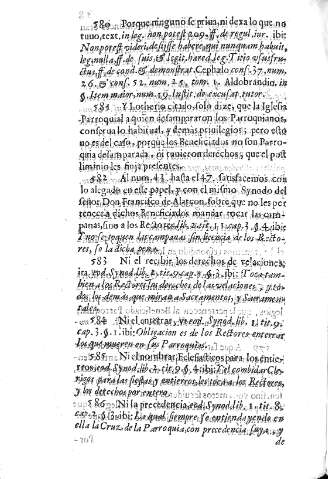 580 Porque ninguno se priua, ni dexa lo que no
tuuo, text. in leg. non potest 209. ff. de regul. iur. ibi:
Non potest videri, desisse habere, qui nunquam habuit,
leg. nulla, ff. de suis, & legit. hared. leg. Titio vsusfru-
ctus, ff. de cond. & demonstrat. Cephalo conf. 37. num.
26. & conf. 52. num. 25. tom. 1. Aldobrandin. in
§. Item maior, num. 19. Instit. de excusat. tutor.
581 Y Lotherio citado, solo dize, que la Iglesia
Parroquial a quien desampararon los Parroquianos,
conserua lo habitual, y demàs priuilegios; pero esto
no es del caso, porque los Beneficiados no son Parro-
quia desamparada, ni tuuieron derechos, que el post
liminio les finja presentes.
582 Al num. 43. hasta el 47. satisfacemos con
lo alegado en este papel, y con el mismo Synodo del
señor Don Francisco de Alarcon, sobre que no les per-
tenece a dichos Beneficiados mandar tocar las cam-
panas, sino a los Rectores, lib. 2. tit. 11. cap. 3. §. 4. ibi:
Y no se toquen las campanas sin licencia de los Recto-
res, so la dicha pena.
583 Ni el recibir los derechos de velaciones,
ead. Synod. lib. 1. tit. 9. cap. 5. §. 3. ibi: Toca tam-
bien a los Rectores los derechos de las velaciones, y to-
dos los demàs que miran a Sacramentos, y Sacramen-
tales.
584 Ni el enterrar, vt ead. Synod. lib. 1. tit. 9.
cap. 3. §. 1. ibi: Obligacion es de los Rectores enterrar
los que mueren en sus Parroquias.
585 Ni el nombrar Eclesiasticos para los entier-
ros, ead. Synod. lib. 2. tit. 9. §. 4. ibi: Y el combidar Cle-
rigos para las fiestas, y entierros, les toca a los Rectores,
y los derechos por entero.
586 Ni la precedencia, ead. Synod. lib. 1. tit. 8.
cap. 2. §. 3. ibi: Lo qual siempre se entienda yendo en
ella la Cruz de la Parroquia, con precedencia suya, y
de